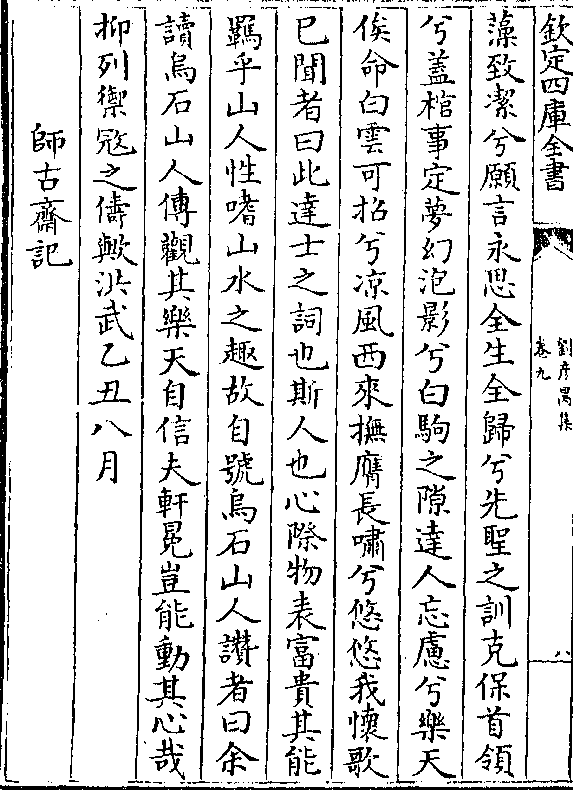 欽定四庫全書
劉彦昺集
卷九
八
藻致潔兮願言永思全生全歸兮先聖之訓克保首領
兮蓋棺事定夢幻泡影兮白駒之隙達人忘慮兮樂天
俟命白雲可招兮凉風西來撫膺長嘯兮悠悠我懷歌
已聞者曰此達士之詞也斯人也心際物表富貴其能
羈乎山人性嗜山水之趣故自號烏石山人讚者曰余
讀烏石山人傳觀其樂天自信夫軒冕豈能動其心哉
抑列禦寇之儔歟洪武乙丑八月
師古齋記